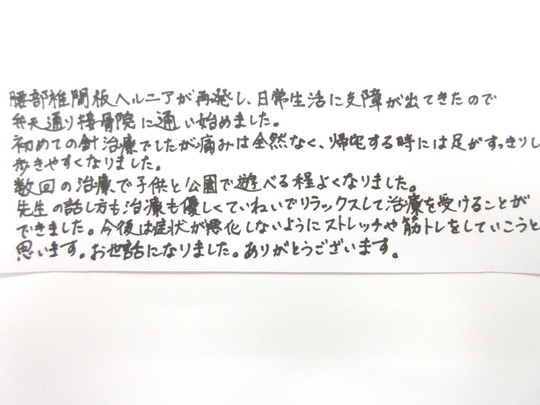 腰部椎間板ヘルニアが再発し、日常生活に支障が出てきたので
弁天通り接骨院に通い始めました。
初めての針治療でしたが痛みは全然なく、帰宅する時には足がすっきりし
歩きやすくなりました。
数回の治療で子供と公園で遊べる程よくなりました。
先生の話し方も治療も優しくていねいでリラックスして治療を受けることが
できました。今後は症状が悪化しないようにストレッチや筋トレをしていこうと
思います。お世話になりました。ありがとうございます。